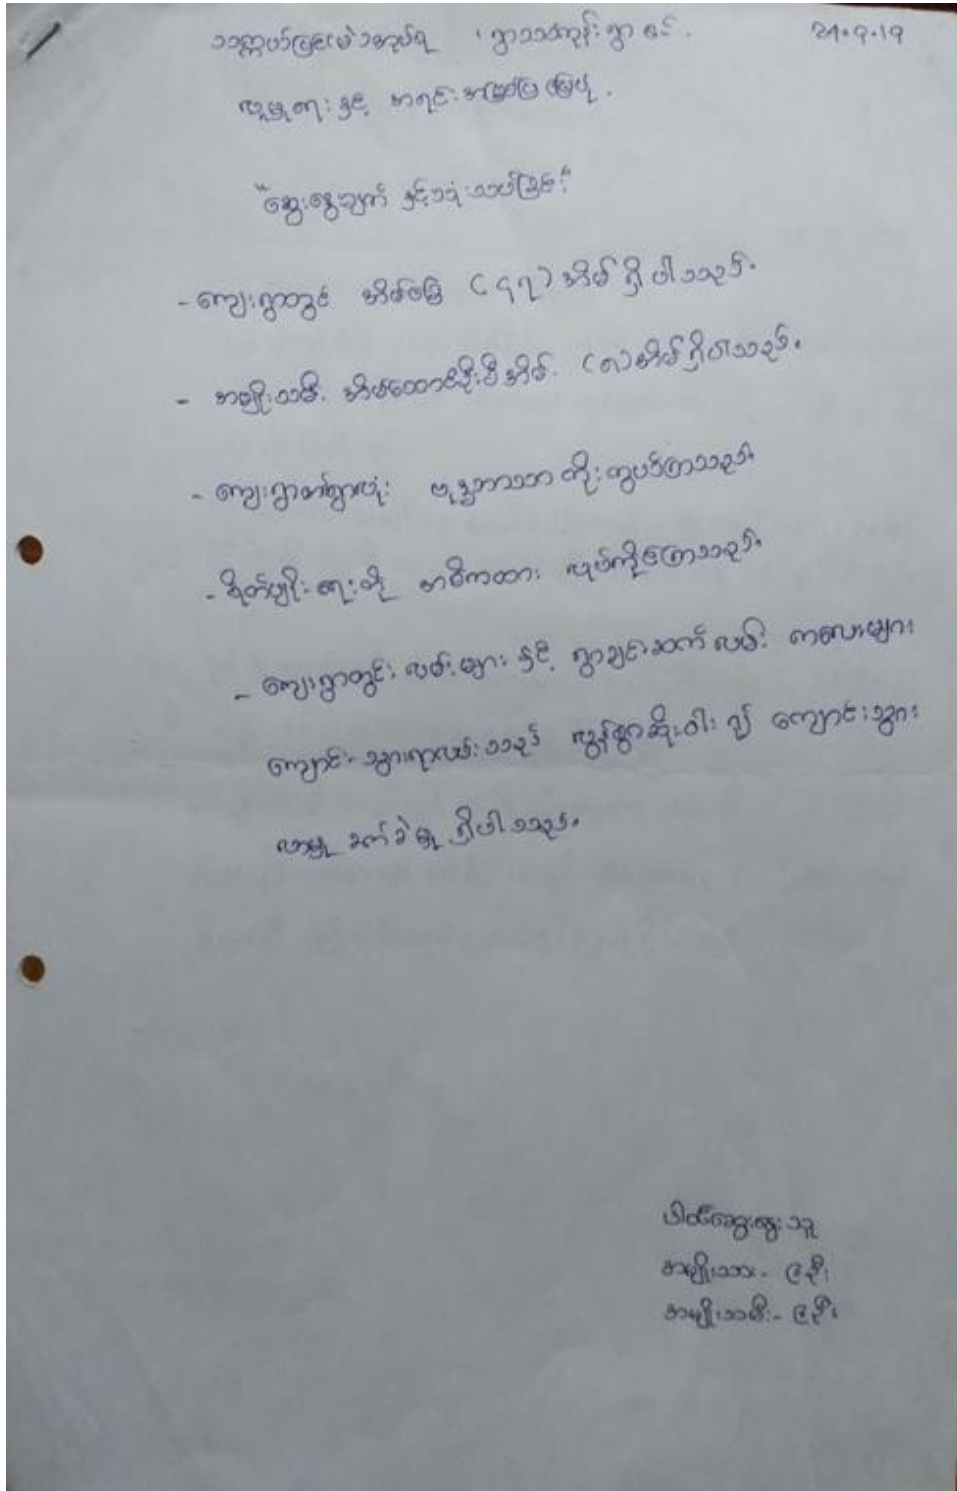 သက္ကယ်ပြင် ရွာသစ်ကုန်းရွာ ၏ 21.9.19
လူမှုရေး နှင့် အရင်းအမြစ်ပြ မြေပုံ.
"ဆွေးနွေးချက် နှင့် သုံးသပ်ခြင်း"
- ကျေးရွာတွင် အိမ်ခြေ (၄၇) အိမ် ရှိ ပါသည်.
- အမျိုးသမီး အိမ်ထောင်ဦးစီးအိမ် (၈) အိမ် ရှိပါသည်.
- ကျေးရွာတစ်ရွာလုံး ဗုဒ္ဓဘာသာ ကိုးကွယ်ကြသည်.
- စိုက်ပျိုးရေးကို အဓိကထား လုပ်ကိုင်ကြသည်.
- ကျေးရွာတွင်း လမ်းများ နှင့် ရွာချင်းဆက် လမ်း ကလေးများ
ကျောင်းသွားရာလမ်းသည် လွန်စွာဆိုးဝါး၍ ကျောင်းသွား
လာမှု ခက်ခဲမှု ရှိပါသည်.
ပါဝင်ဆွေးနွေးသူ
အမျိုးသား - ၉ဦး
အမျိုးသမီး - ၉ဦး